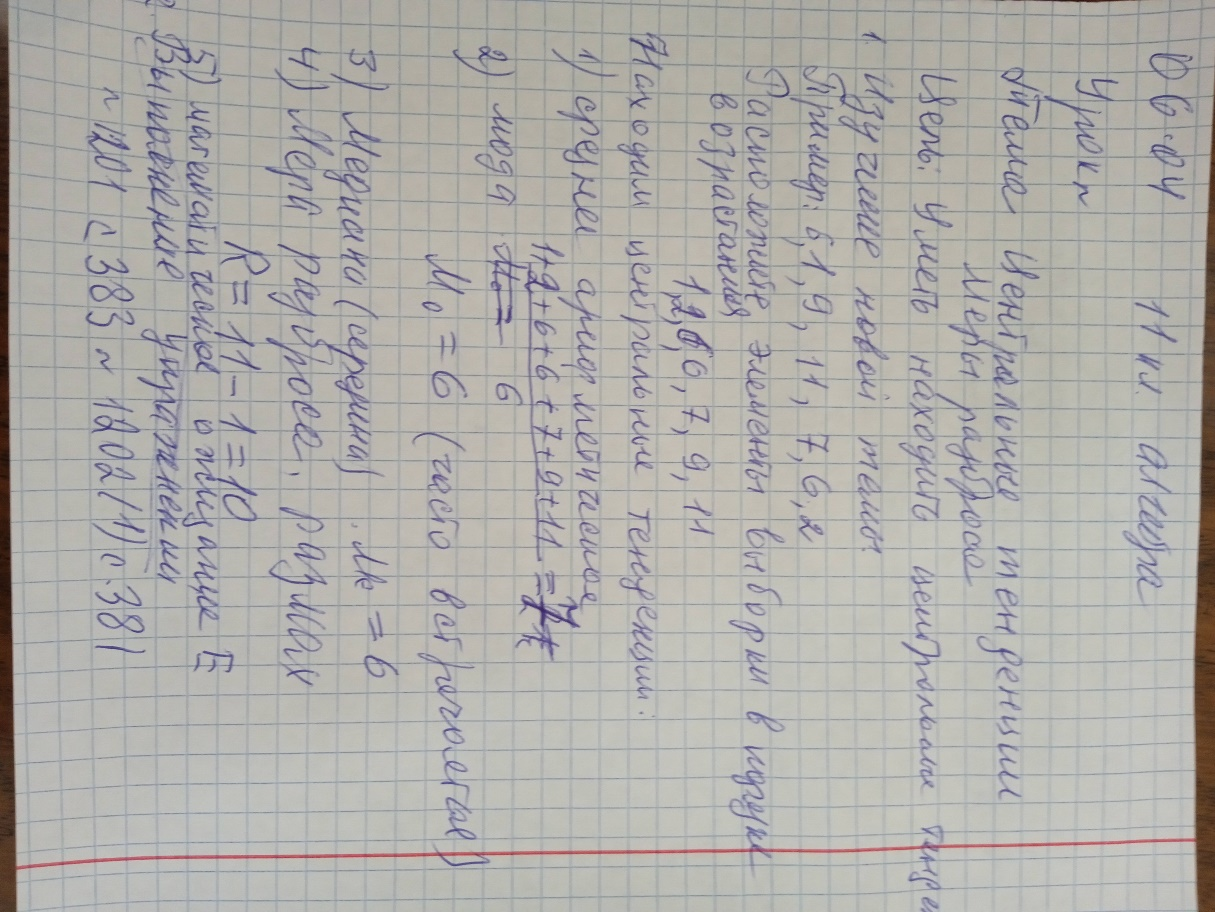 06.04 11 кл алгебра
Урок
Тема Центральные тенденции
Меры разброса
Цель: Уметь находить центральные
1. Изучение новой темы.
Пример: 6,1, 9, 11, 7, 6, 2
Расположите элементы выборки в
возрастания
1,2,6,6, 7, 9, 11
Находим центральные тенденции:
1) среднее арифметическое
1+2+6+6+7+9+11 = 7
6
2) мода
M₀ = 6 (часто встречается)
3) Медиана (середина) . Me = 6
4) Мера разброса. размах
R = 11 - 1 = 10
5) ожидание E
2. Выполнение упражнений
~ 1201 с 383 ~ 1202 (1) с. 381